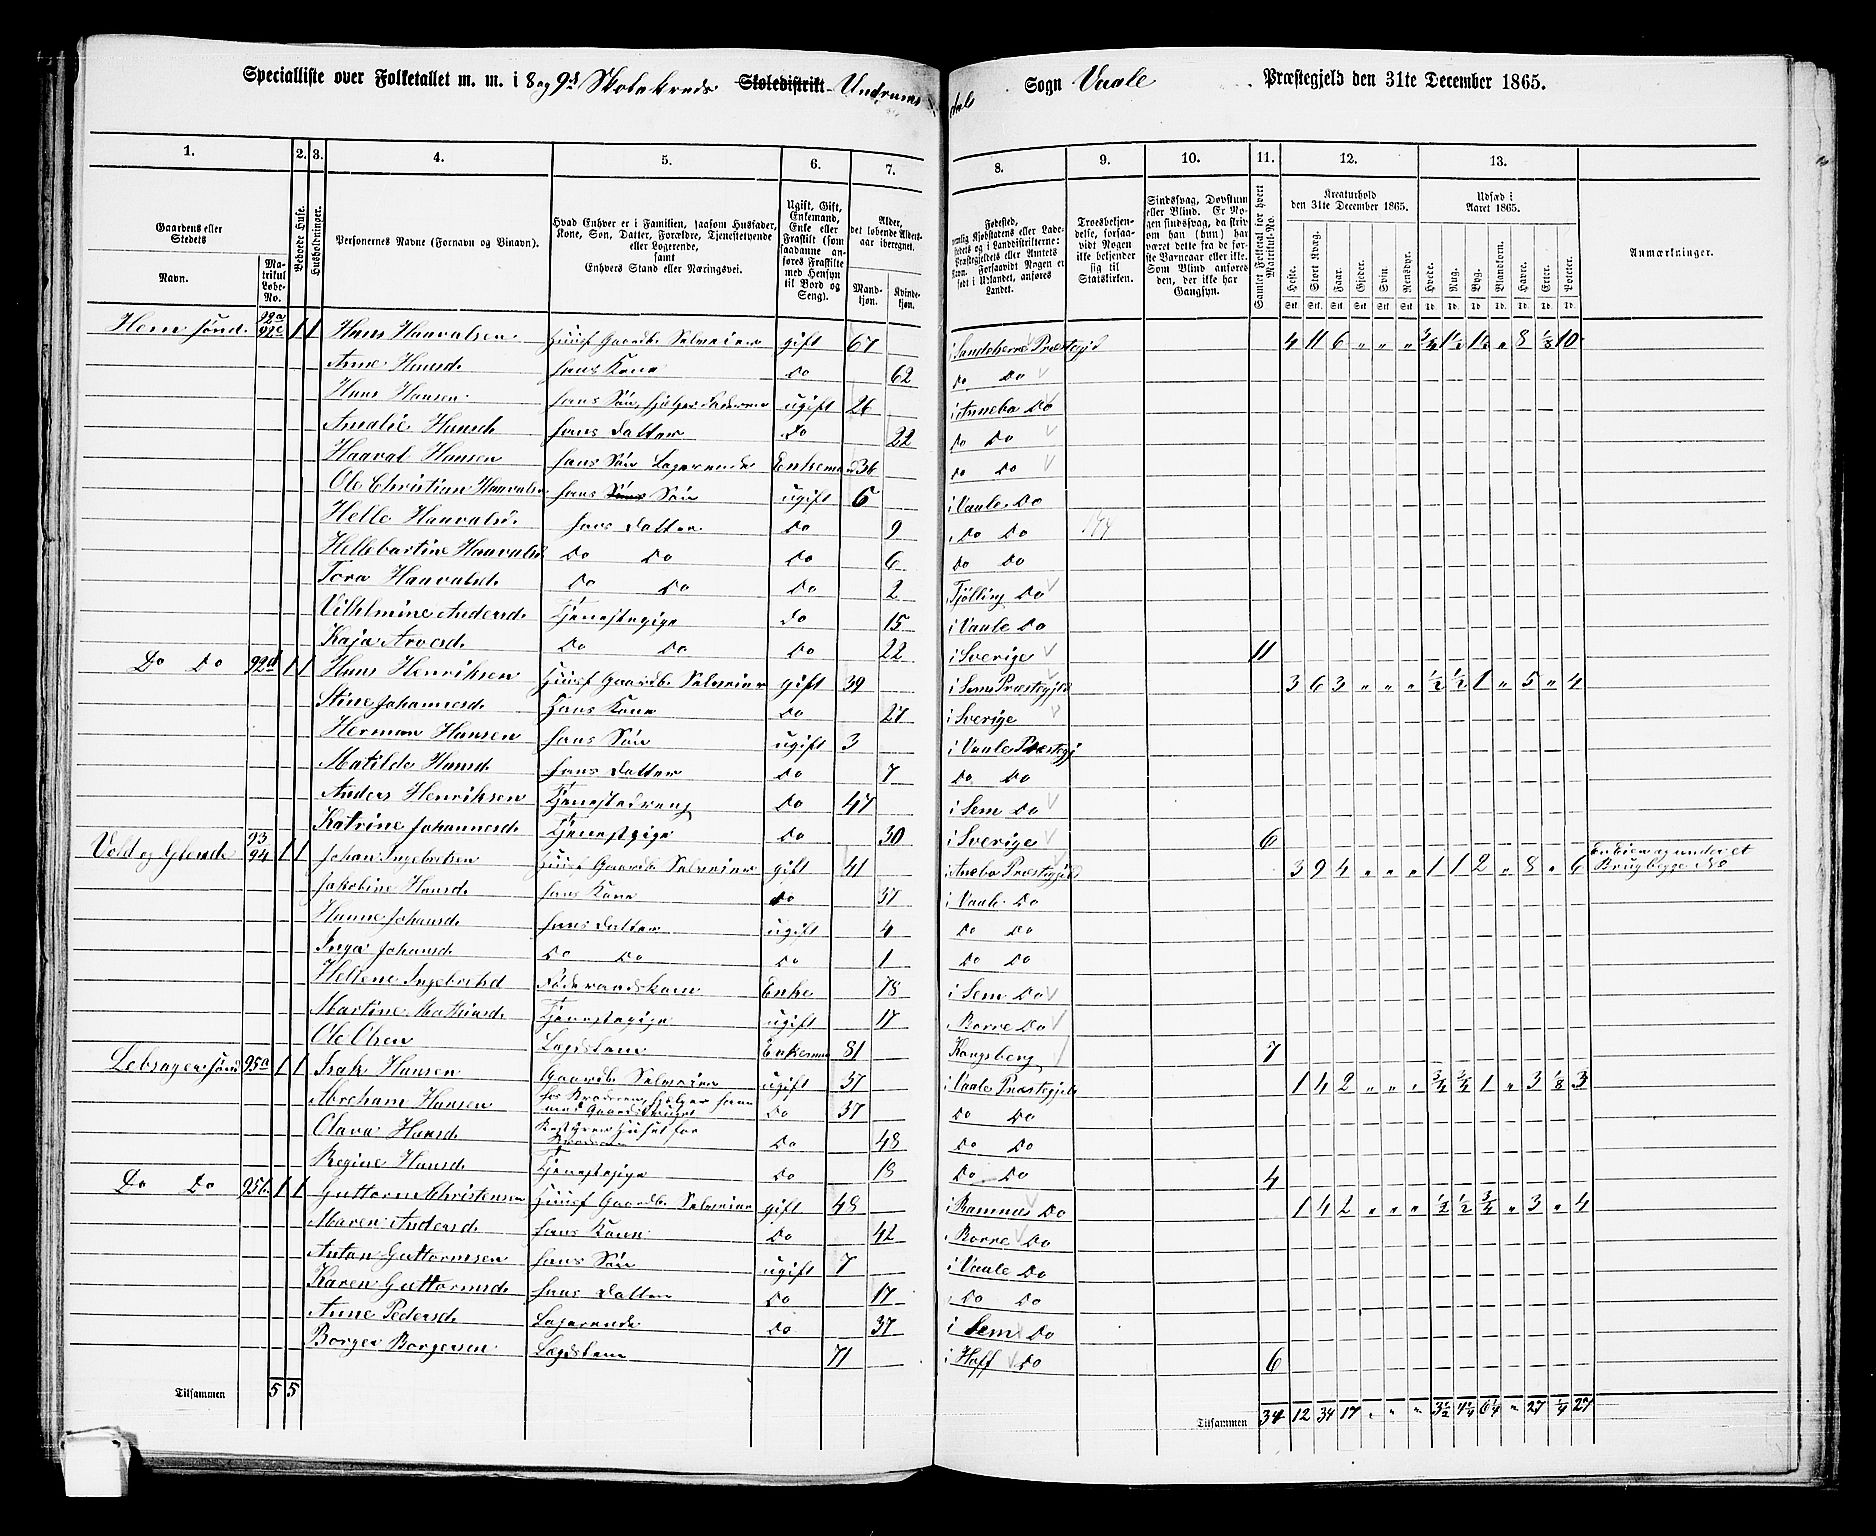 Specialliste over Folketallet m. m. i 8 og 9de Skolekreds Skoledistrikt Undrums dal Sogn Vaale Præstegjeld den 31te December 1865.
1. 2. 3. 4. 5. 6. 7. 8. 9. 10. 11. 12. 13.
Gaardens eller Stedets
Navn.
Matrikul Løbe-No.
Beboede Huse.
Husholdninger.
Personernes Navne (Fornavn og Binavn).
Hvad Enhver er i Familien, saasom Husfader, Kone, Søn, Datter, Forældre, Tjenestetyende eller Logerende, samt Enhvers Stand eller Næringsvei.
Ugift, Gift, Enkemand, Enke eller Fraskilt (som saadanne anføres Fraskilte med Hensyn til Bord og Seng).
Alder, det løbende Alders-aar iberegnet.
Mandkjøn. Kvindekjøn.
Fødested,
Troesbekjendelse, forsaavidt Nogen ikke bekjender sig til Statskirken.
Sindssvag, Døvstum eller Blind. Er Nogen sindssvag, da skrives, om han (hun) har været dette fra de første Barneaar eller ikke. Som Blind anføres den, der ikke har Gangsyn.
Samlet Folketal for hvert Matrikul-No.
Kreaturhold den 31te December 1865.
Heste. Stort Kvæg. Faar. Gjeder. Svin. Rensdyr.
Udsæd i Aaret 1865.
Hvede. Rug. Byg. Blandkorn. Havre. Erter. Poteter.
Anmærkninger.
Hem sønd 92a 92c 1 1 Hans Haavalsen Huusf Gaardb. Selveier gift 67 i Sandeherre Præstegjd 4 11 6 " " " 3/4 1 1/2 1 1/2 " 8 1/8 10
Anne Hansd hans Kone Do 62 Do Do
Hans Hansen hans Søn, hjelper Faderen ugift 26 i Annebo Do
Amalie Hansd hans Datter Do 22 Do Do
Haaval Hansen hans Søn Logerende Enkemand 36 Do Do
Ole Christian Haavalsen hans Søn ugift 5 i Vaale Do
Helle Haavalsd. hans Datter Do 9 Do Do
Hellebartine Haavalsd Do Do Do 6 Do Do
Tora Haavalsd. Do Do Do 2 Tjølling Do
Vilhelmine Andersd. Tjenestepige Do 15 i Vaale Do
Kaja Arvesd. Do Do Do 22 i Sverige 11
Do Do 92d 1 1 Hans Henriksen Huusf Gaardb. Selveier gift 39 i Sem Præstegjeld 3 6 3 " " " 1/2 1/2 1 " 5 " 4
Stine Johannesd. Hans Kone Do 27 i Sverige
Herman Hansen hans Søn ugift 3 i Vaale Præstegj
Matilde Hansd. hans Datter Do 7 Do Do
Anders Henriksen Tjenestedreng Do 47 i Sem Do
Katrine Johannesd. Tjenestepige Do 30 i Sverige 6
Vold og Glende 93 94 1 1 Johan Ingebretsen Huusf Gaardb. Selveier gift 41 i Anebo Præstegjeld 3 9 4 " " " 1 1 2 " 8 " 6
Jakobine Hansd. hans Kone Do 37 i Vaale Do
Hanne Johansd. hans Datter ugift 4 Do Do
Inga Johansd. Do Do Do 1 Do Do
Hellene Ingebretsd Føderaadskone Enke 78 i Sem Do
Martine Mathiasd. Tjenestepige ugift 17 Borre Do
Ole Olsen Lægdslem Enkemand 81 Kongsberg 7
Lebsager sønd 95a 1 1 Isak Hansen Gaardb. Selveier ugift 37 i Vaale Præstegjeld 1 4 2 " " " 3/4 3/4 1 " 3 1/8 3
Abraham Hansen hos Broderen, hjelper ham med Gaardsbruget Do 37 Do Do
Olava Hansd. Bestyrer Huset for Do 48 Do Do
Regine Hansd. Tjenestepige Do 18 Do Do 4
Do Do 95b 1 1 Guttorm Christensen Huusf Gaardb. Selveier gift 48 i Ramnes Do 1 4 2 " " " 1/2 1/2 3/4 " 3 " 4
Maren Andersd. hans Kone Do 42 Borre Do
Anton Guttormsen hans Søn ugift 7 i Vaale Do
Karen Guttormsd. hans Datter Do 17 Do Do
Anne Pedersd. Logerende Do 37 i Sem Do
Borger Borgersen Lægdslem 71 i Hoff Do 6
Tilsammen 5 5 Tilsammen 34 12 34 17 " " " 27 1/4 27